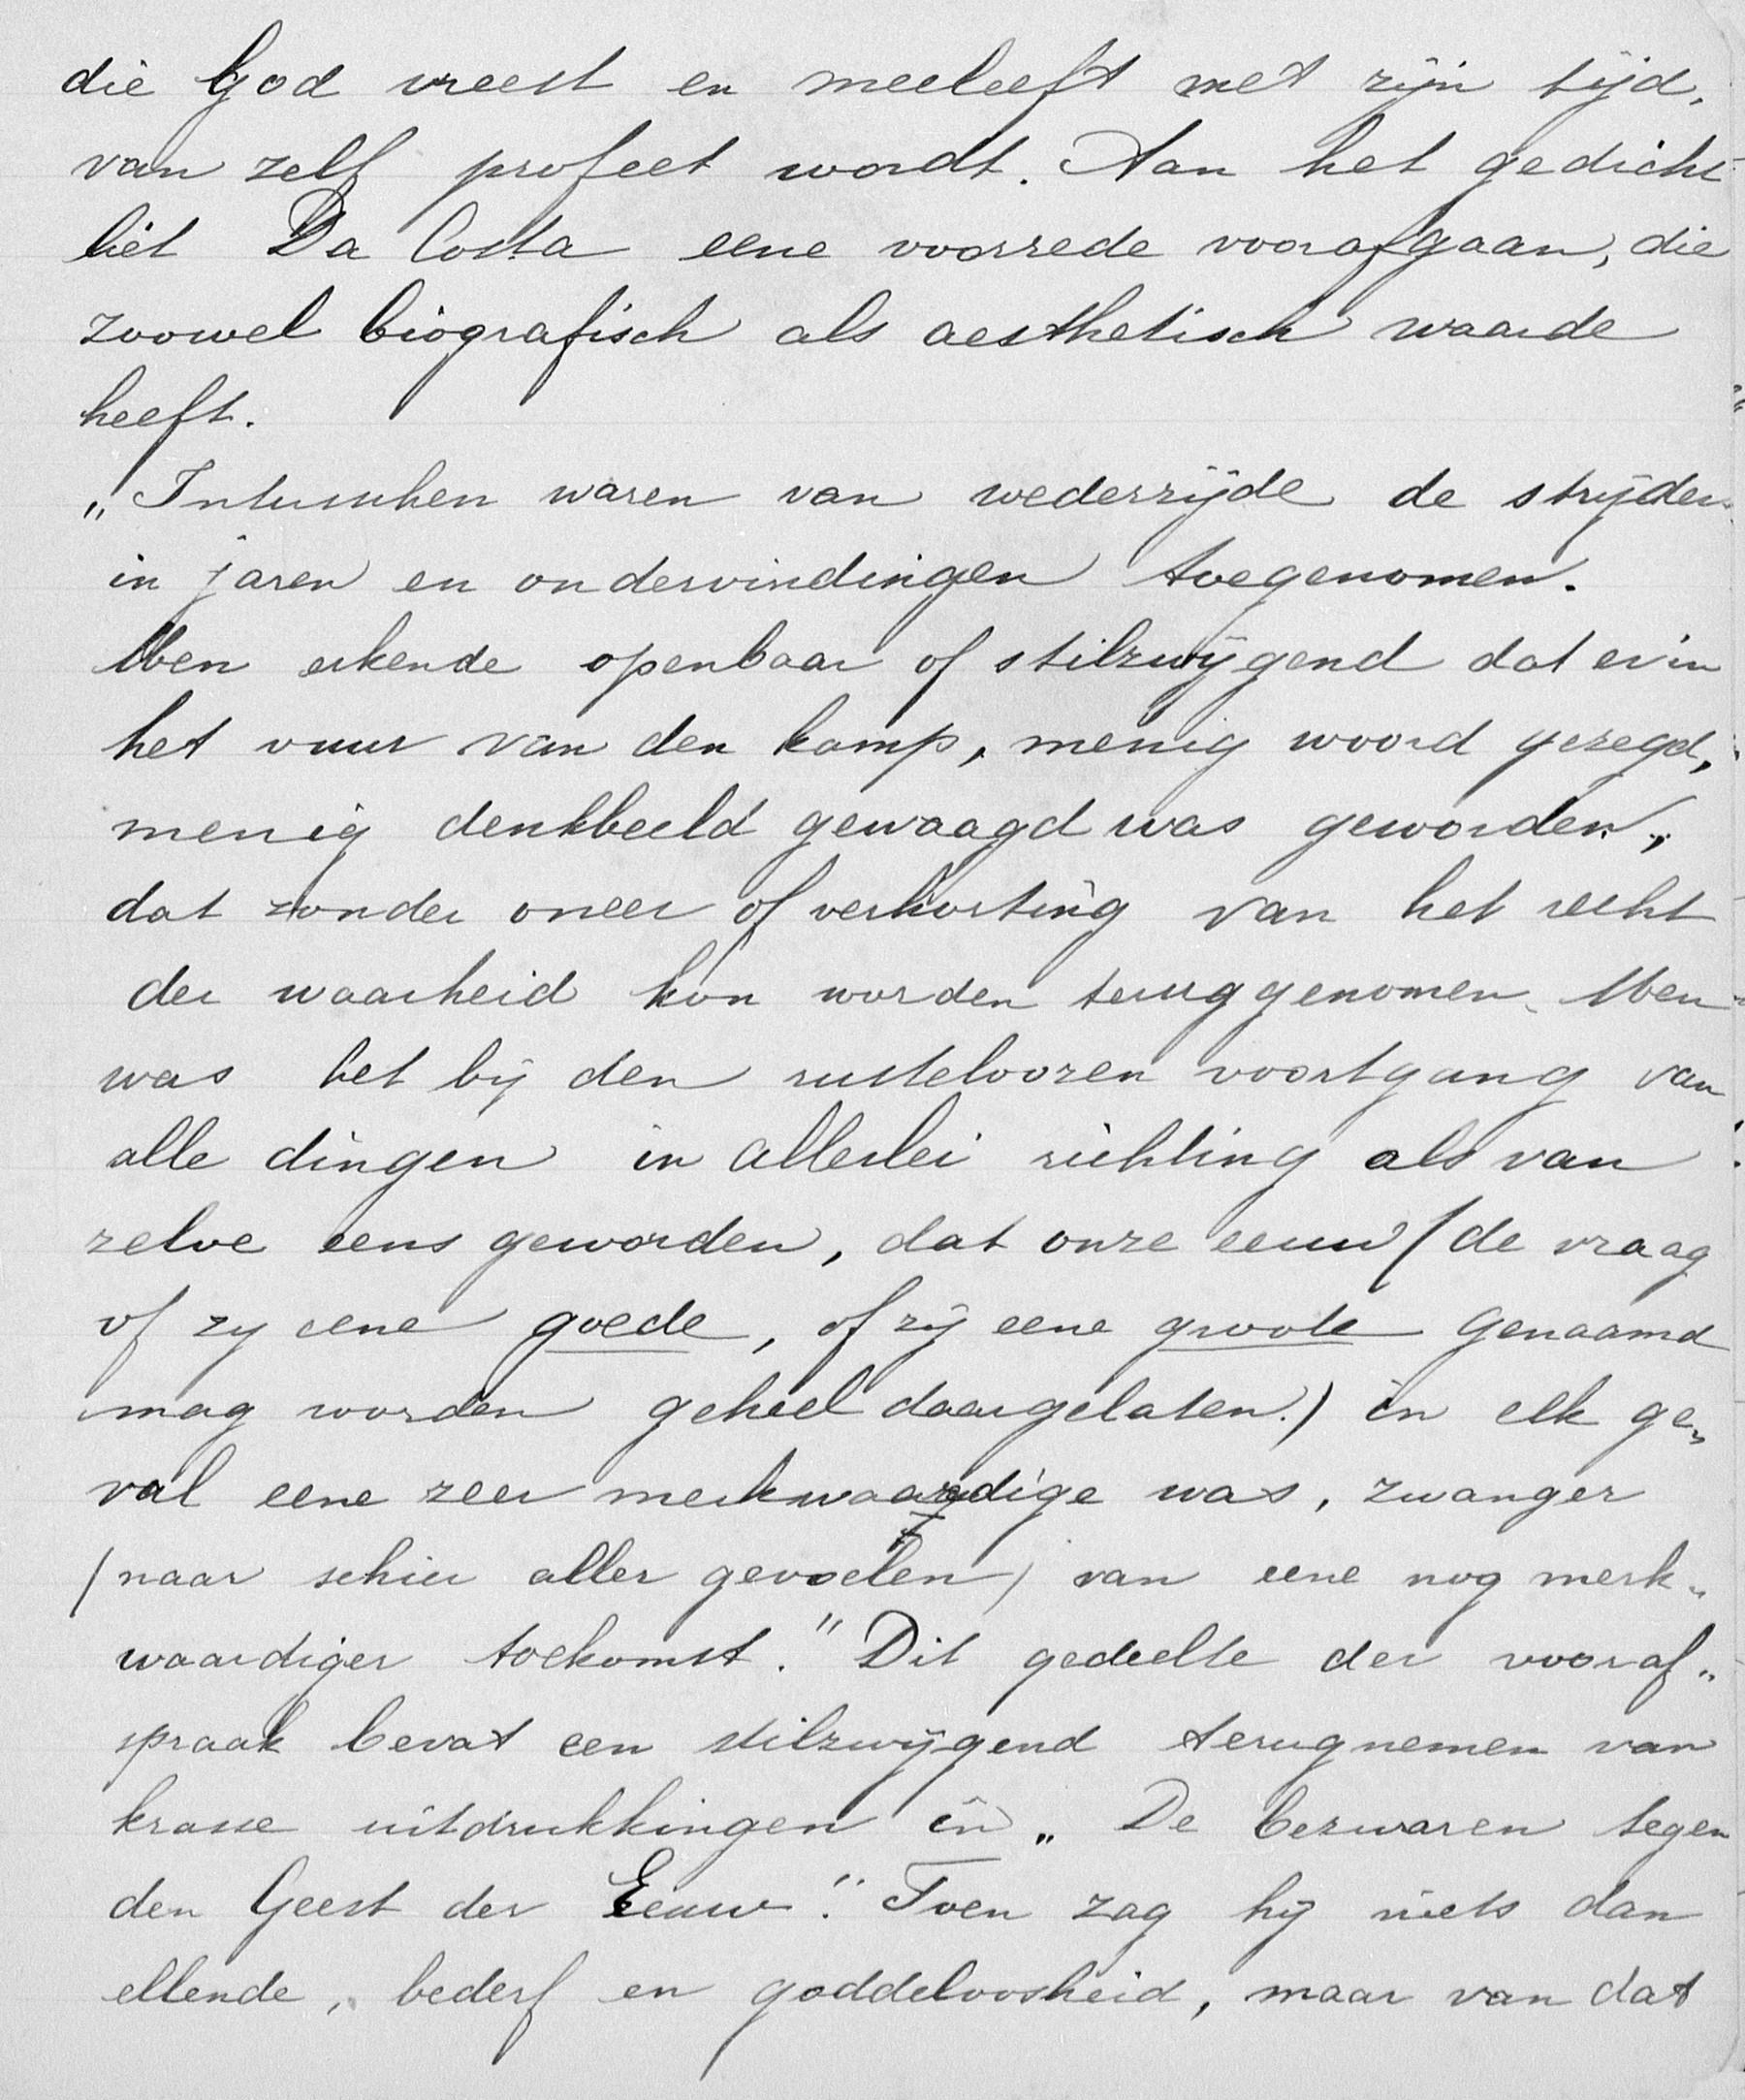 die God vreest en meeleeft met zijn tijd,
van zelf profeet wordt. Aan het gedicht
liet Da Costa eene voorrede voorafgaan, die
zoowel biografisch als aesthetisch waarde
heeft.
„Intusschen waren van wederzijde de strijders
in jaren en ondervindingen toegenomen.
Men erkende openbaar of stilzwijgend dat er in
het vuur van den kamp, menig woord gezegd,
menig denkbeeld gewaagd was geworden,
dat zonder oneer of verkorting van het recht
der waarheid kon worden teruggenomen. Men
was het bij den rusteloozen voortgang van
alle dingen in allerlei richting als van
zelve eens geworden, dat onze eeuw (de vraag
of zy eene goede, of zij eene groote genaamd
mag worden geheel daargelaten.) in elk ge„
val eene zeer merkwaardige was, zwanger
(naar schier aller gevoelen) van eene nog merk„
waardiger toekomst." Dit gedeelte der vooraf„
spraak bevat een stilzwijgend terugnemen van
krasse uitdrukkingen in „De bezwaren tegen
den Geest der Eeuw". Toen zag hij niets dan
ellende, bederf en goddeloosheid, maar van dat